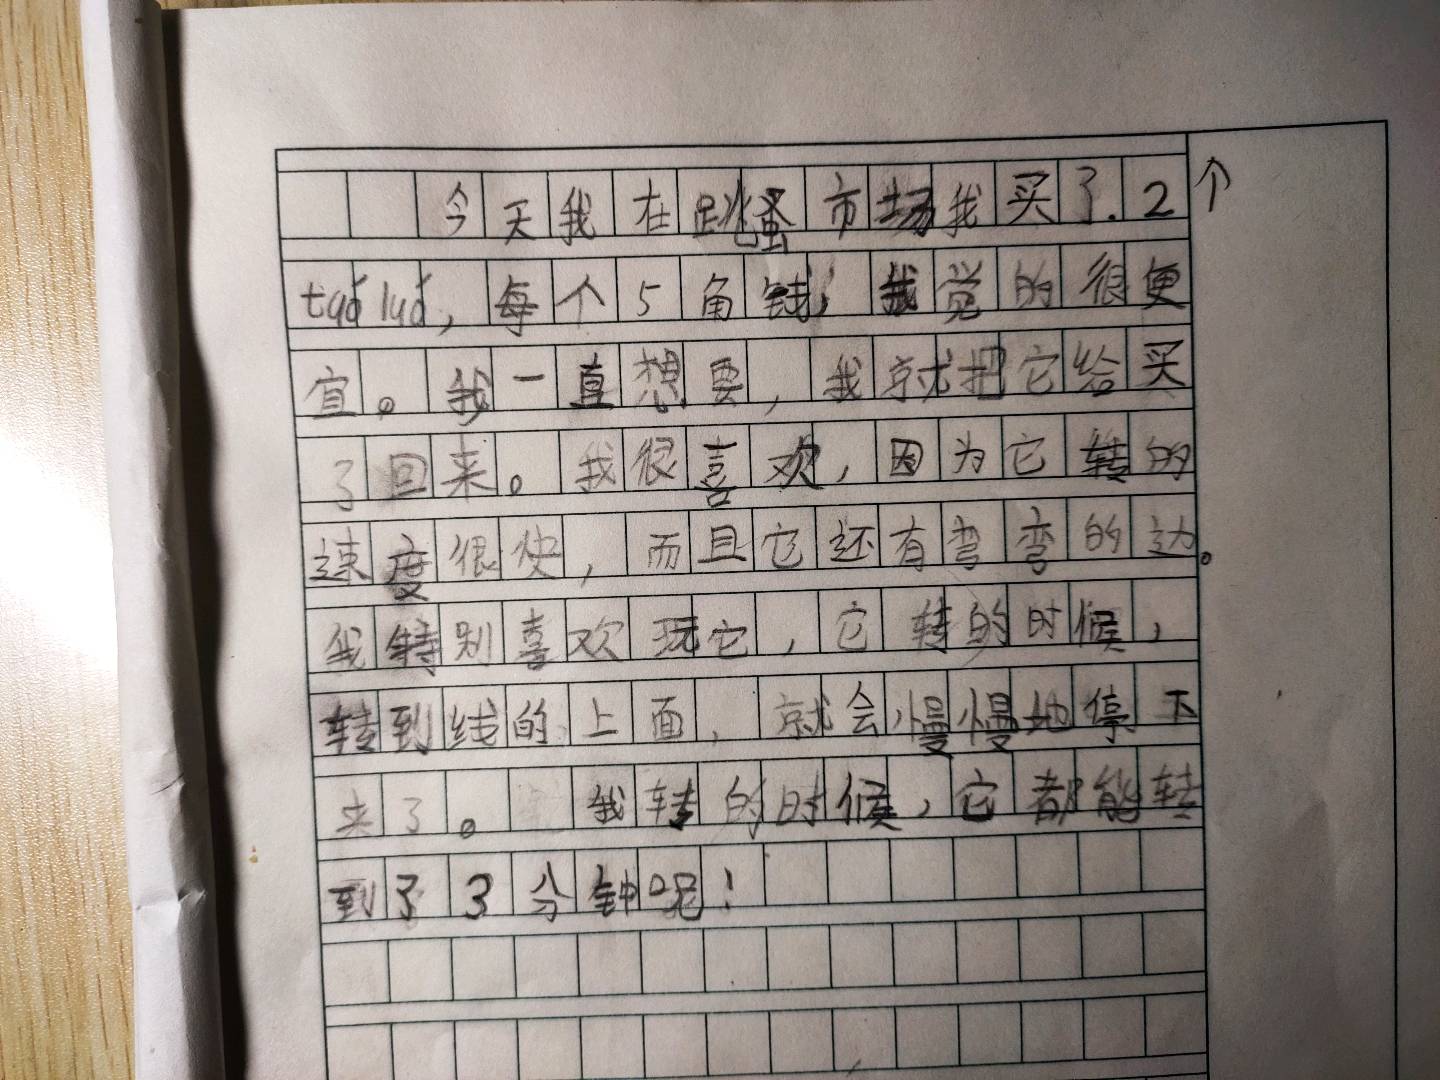 今天我在跳蚤市场我买了.2个
tuóluó，每个5角钱，我觉的很便
宜。我一直想要，我就把它给买
了回来。我很喜欢，因为它转的
速度很快，而且它还有弯弯的边。
我特别喜欢玩它，它转的时候，
转到线的上面，就会慢慢地停下
来了。我转的时候，它都能转
到了3分钟呢！